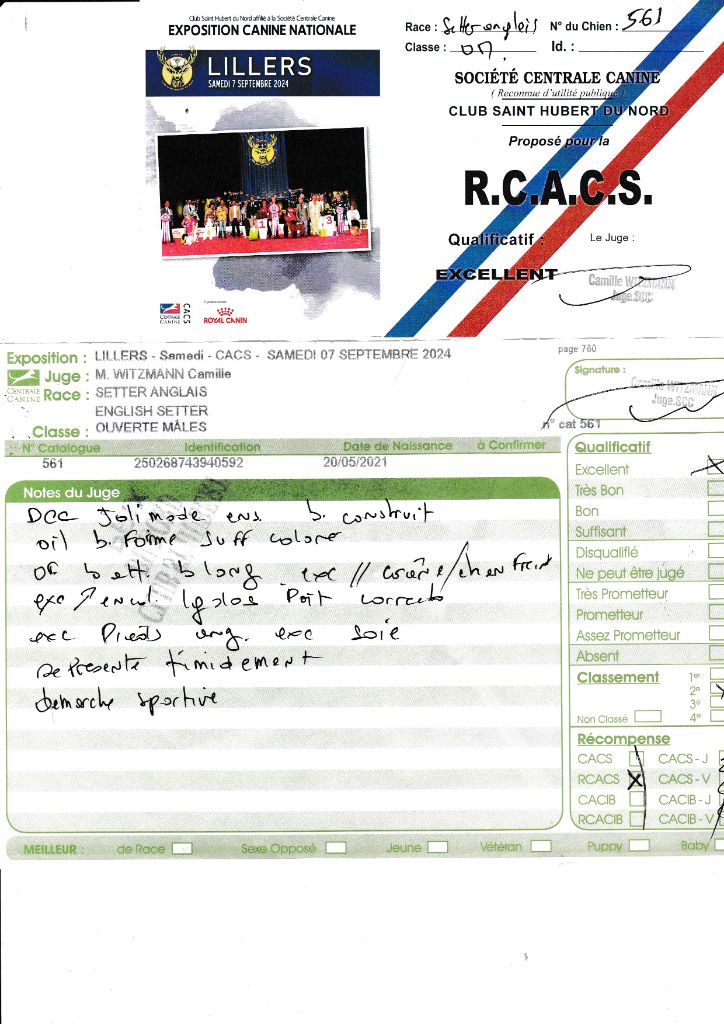 Club Saint Hubert du Nord affilié à la Société Centrale Canine
EXPOSITION CANINE NATIONALE
LILLERS
SAMEDI 7 SEPTEMBRE 2024
CENTRALE CANINE
CACS
ROYAL CANIN
Race : Setter anglais N° du Chien : 561
Classe : OM Id. :
SOCIÉTÉ CENTRALE CANINE
( Reconnue d'utilité publique )
CLUB SAINT HUBERT DU NORD
Proposé pour la
R.C.A.C.S.
Qualificatif : Le Juge :
EXCELLENT
Camille WITZMANN
Juge SCC
Exposition : LILLERS - Samedi - CACS - SAMEDI 07 SEPTEMBRE 2024
page 760
Juge : M. WITZMANN Camille
CENTRALE CANINE
Race : SETTER ANGLAIS
ENGLISH SETTER
Classe : OUVERTE MÂLES
Signature :
Camille WITZMANN
Juge SCC
n° cat 561
N° Catalogue Identification Date de Naissance à Confirmer
561 250268743940592 20/05/2021
Notes du Juge
DCC Joli mode ens. b. construit
oil b. Forme suff colore
OF b att. b long exc // crâne/chanfrein
exc encol lg dos Poit correcte
exc Pieds ang. exc soie
se Presente timidement
demarche sportive
Qualificatif
Excellent
Très Bon
Bon
Suffisant
Disqualifié
Ne peut être jugé
Très Prometteur
Prometteur
Assez Prometteur
Absent
Classement 1er
2e
3e
Non Classé 4e
Récompense
CACS CACS - J
RCACS X CACS - V
CACIB CACIB - J
RCACIB CACIB - V
MEILLEUR : de Race Sexe Opposé Jeune Vétéran Puppy Baby